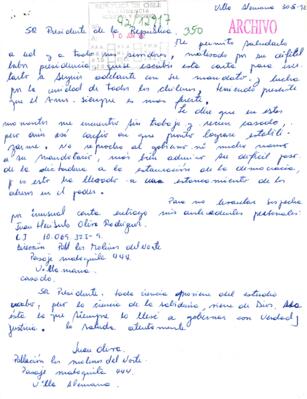 Villa Alemana
ARCHIVO
Sr Presidente de la República. 350
Me permito saludarlo
a ud y a todos sus servidores, motivado por su difícil
labor presidencial quise escribir esta carta para
a seguir adelante con su mandato y lucha
por la unidad de todos los chilenos teniendo presente
que el Amor siempre es más fuerte.
Le digo que en estos
momentos me encuentro sin trabajo y recién casado,
pero aún así confío en que pronto lograré
No reprocho al gobierno ni mucho menos
a su mandatario, más bien admiro su difícil paso
de la dictadura a la restauración de la democracia,
y es esto ha llevado a un estancamiento de los
en el poder.
Para no levantar sospecha
por inusual carta entrego mis antecedentes personales:
Juan Olivo Rodríguez
C.I 10.069.
Dirección Pobl Los Molinos del Norte
Pasaje 444.
Villa Alemana
casado.
Sr Presidente: toda ciencia proviene del estudio
pero la ciencia de la sabiduría viene de Dios,
esto lo que siempre lo llevó a gobernar con verdad y
justicia. Lo saluda atentamente
Juan Olivo.
Población los molinos del Norte.
Pasaje 444.
Villa Alemana